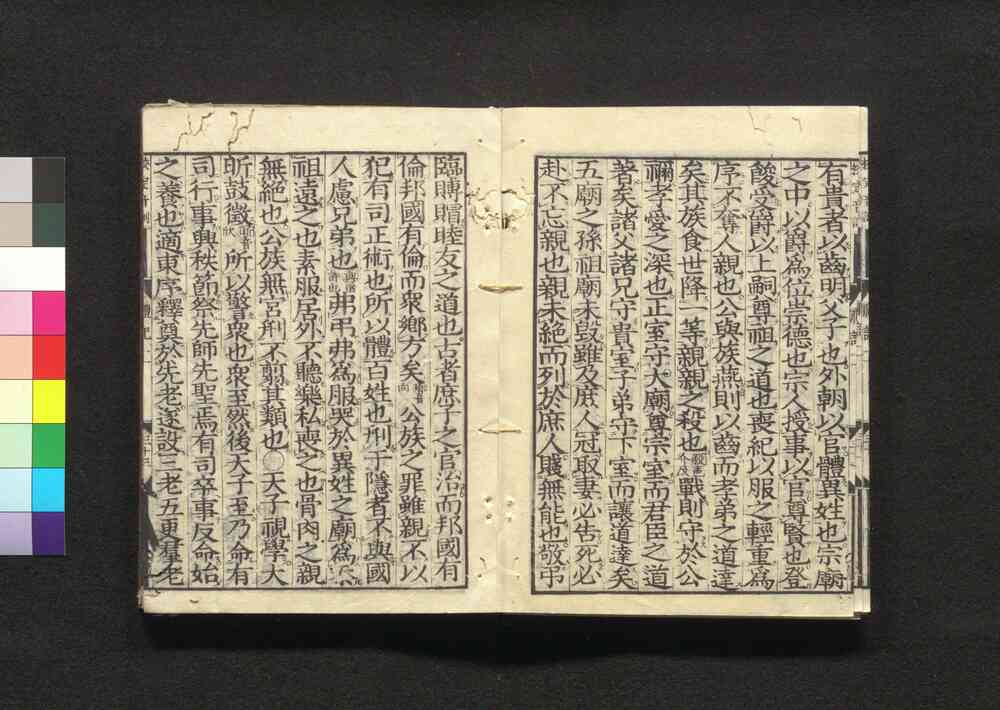 有貴者以齒明父子也外朝以官體異姓也宗廟
之中以爵爲位崇德也宗人授事以官尊賢也登
餕受爵以上嗣尊祖之道也喪紀以服之輕重爲
序不奪人親也公與族燕則以齒而孝弟之道達
矣其族食世降一等親親之殺也戰則守於公
禰孝愛之深也正室守大廟尊宗室而君臣之道
著矣諸父諸兄守貴室子弟守下室而讓道達矣
五廟之孫祖廟未毀雖及庶人冠取妻必告死必
赴不忘親也親未絶而列於庶人賤無能也敬弔
臨賻賵睦友之道也古者庶子之官治而邦國有
倫邦國有倫而衆鄉方矣公族之罪雖親不以
犯有司正術也所以體百姓也刑于隱者不與國
人慮兄弟也弗弔弗爲服哭於異姓之廟爲忝
祖遠之也素服居外不聽樂私喪之也骨肉之親
無絶也公族無宮刑不翦其類也〇天子視學大
昕鼓徵所以警衆也衆至然後天子至乃命有
司行事興秩節祭先師先聖焉有司卒事反命始
之養也適東序釋奠於先老遂設三老五更羣老